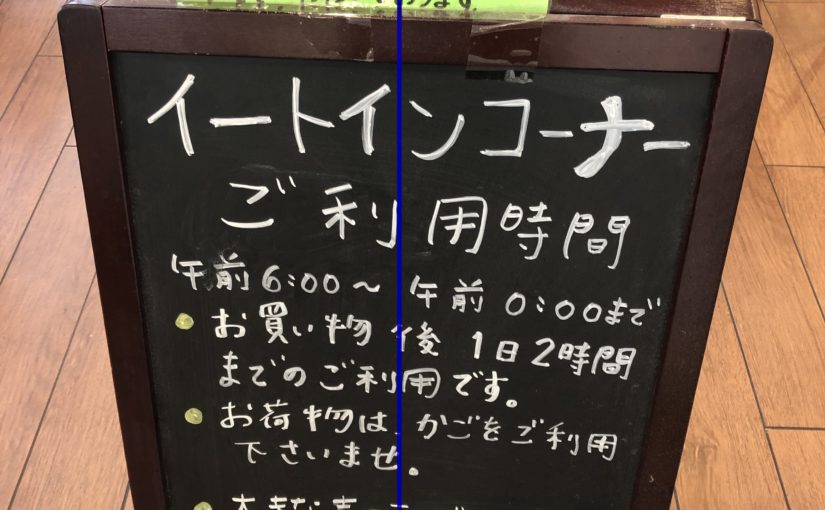 イートインコーナー
ご利用時間
午前6:00〜午前0:00まで
お買い物後1日2時間
までのご利用です。
お荷物は、かごをご利用
下さいませ。